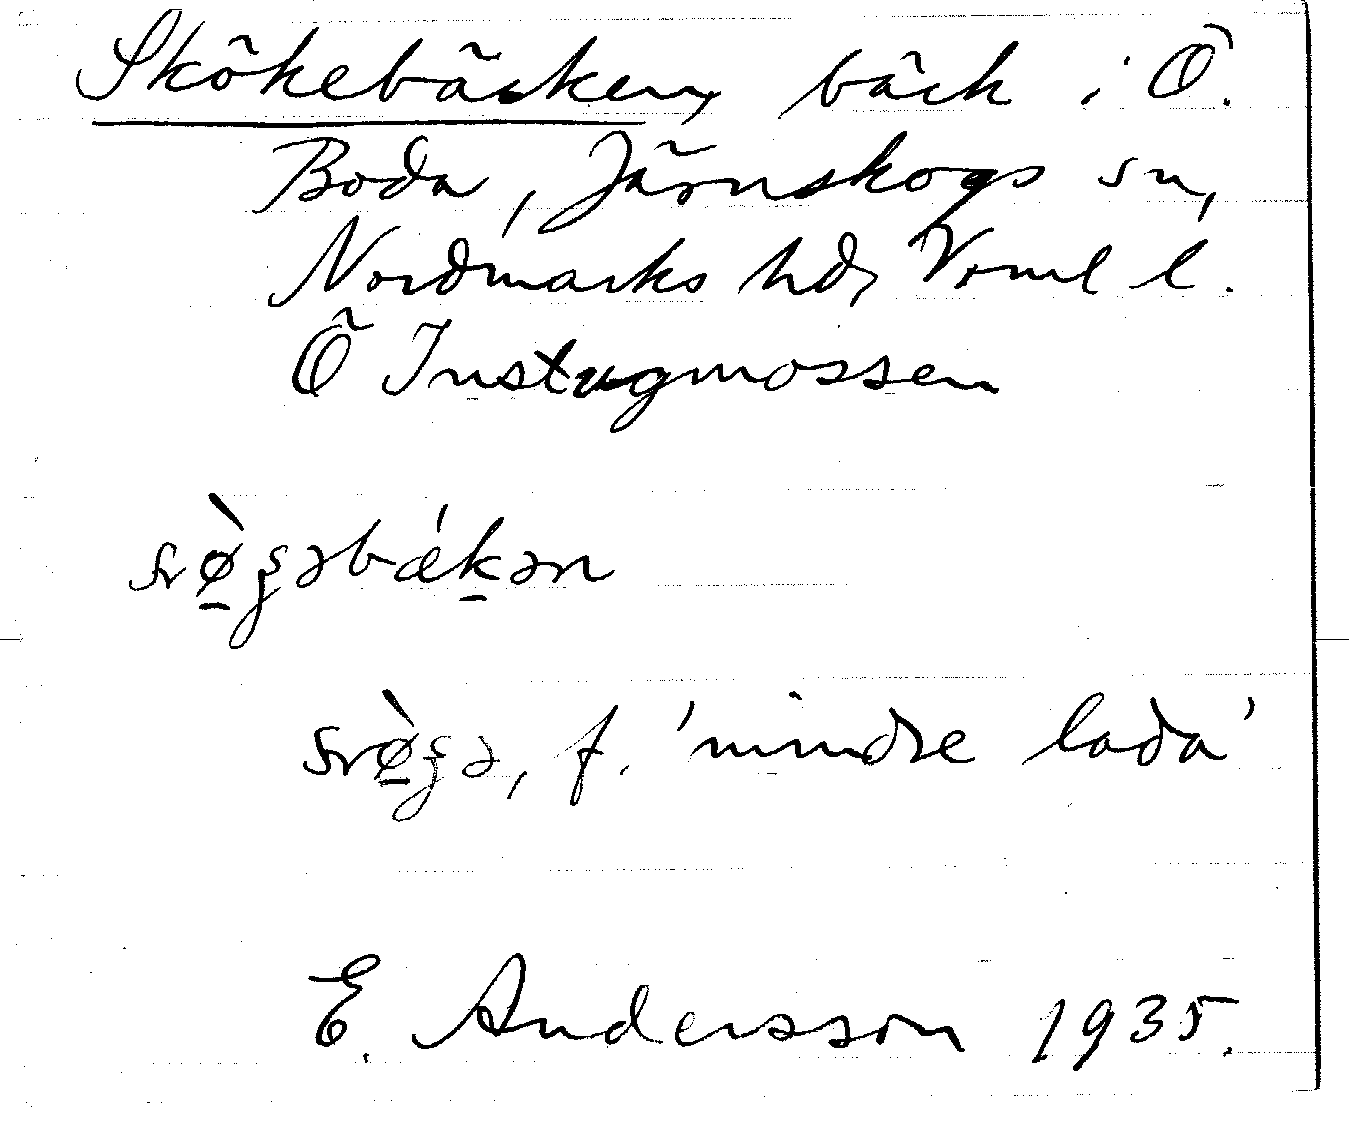 Skökebäcken, bäck i Ö.
Boda, Järnskogs sn,
Nordmarks hd, Vrml l.
Ö Instugmossen
bǽkən
f. 'mindre lada'
E. Andersson 1935.